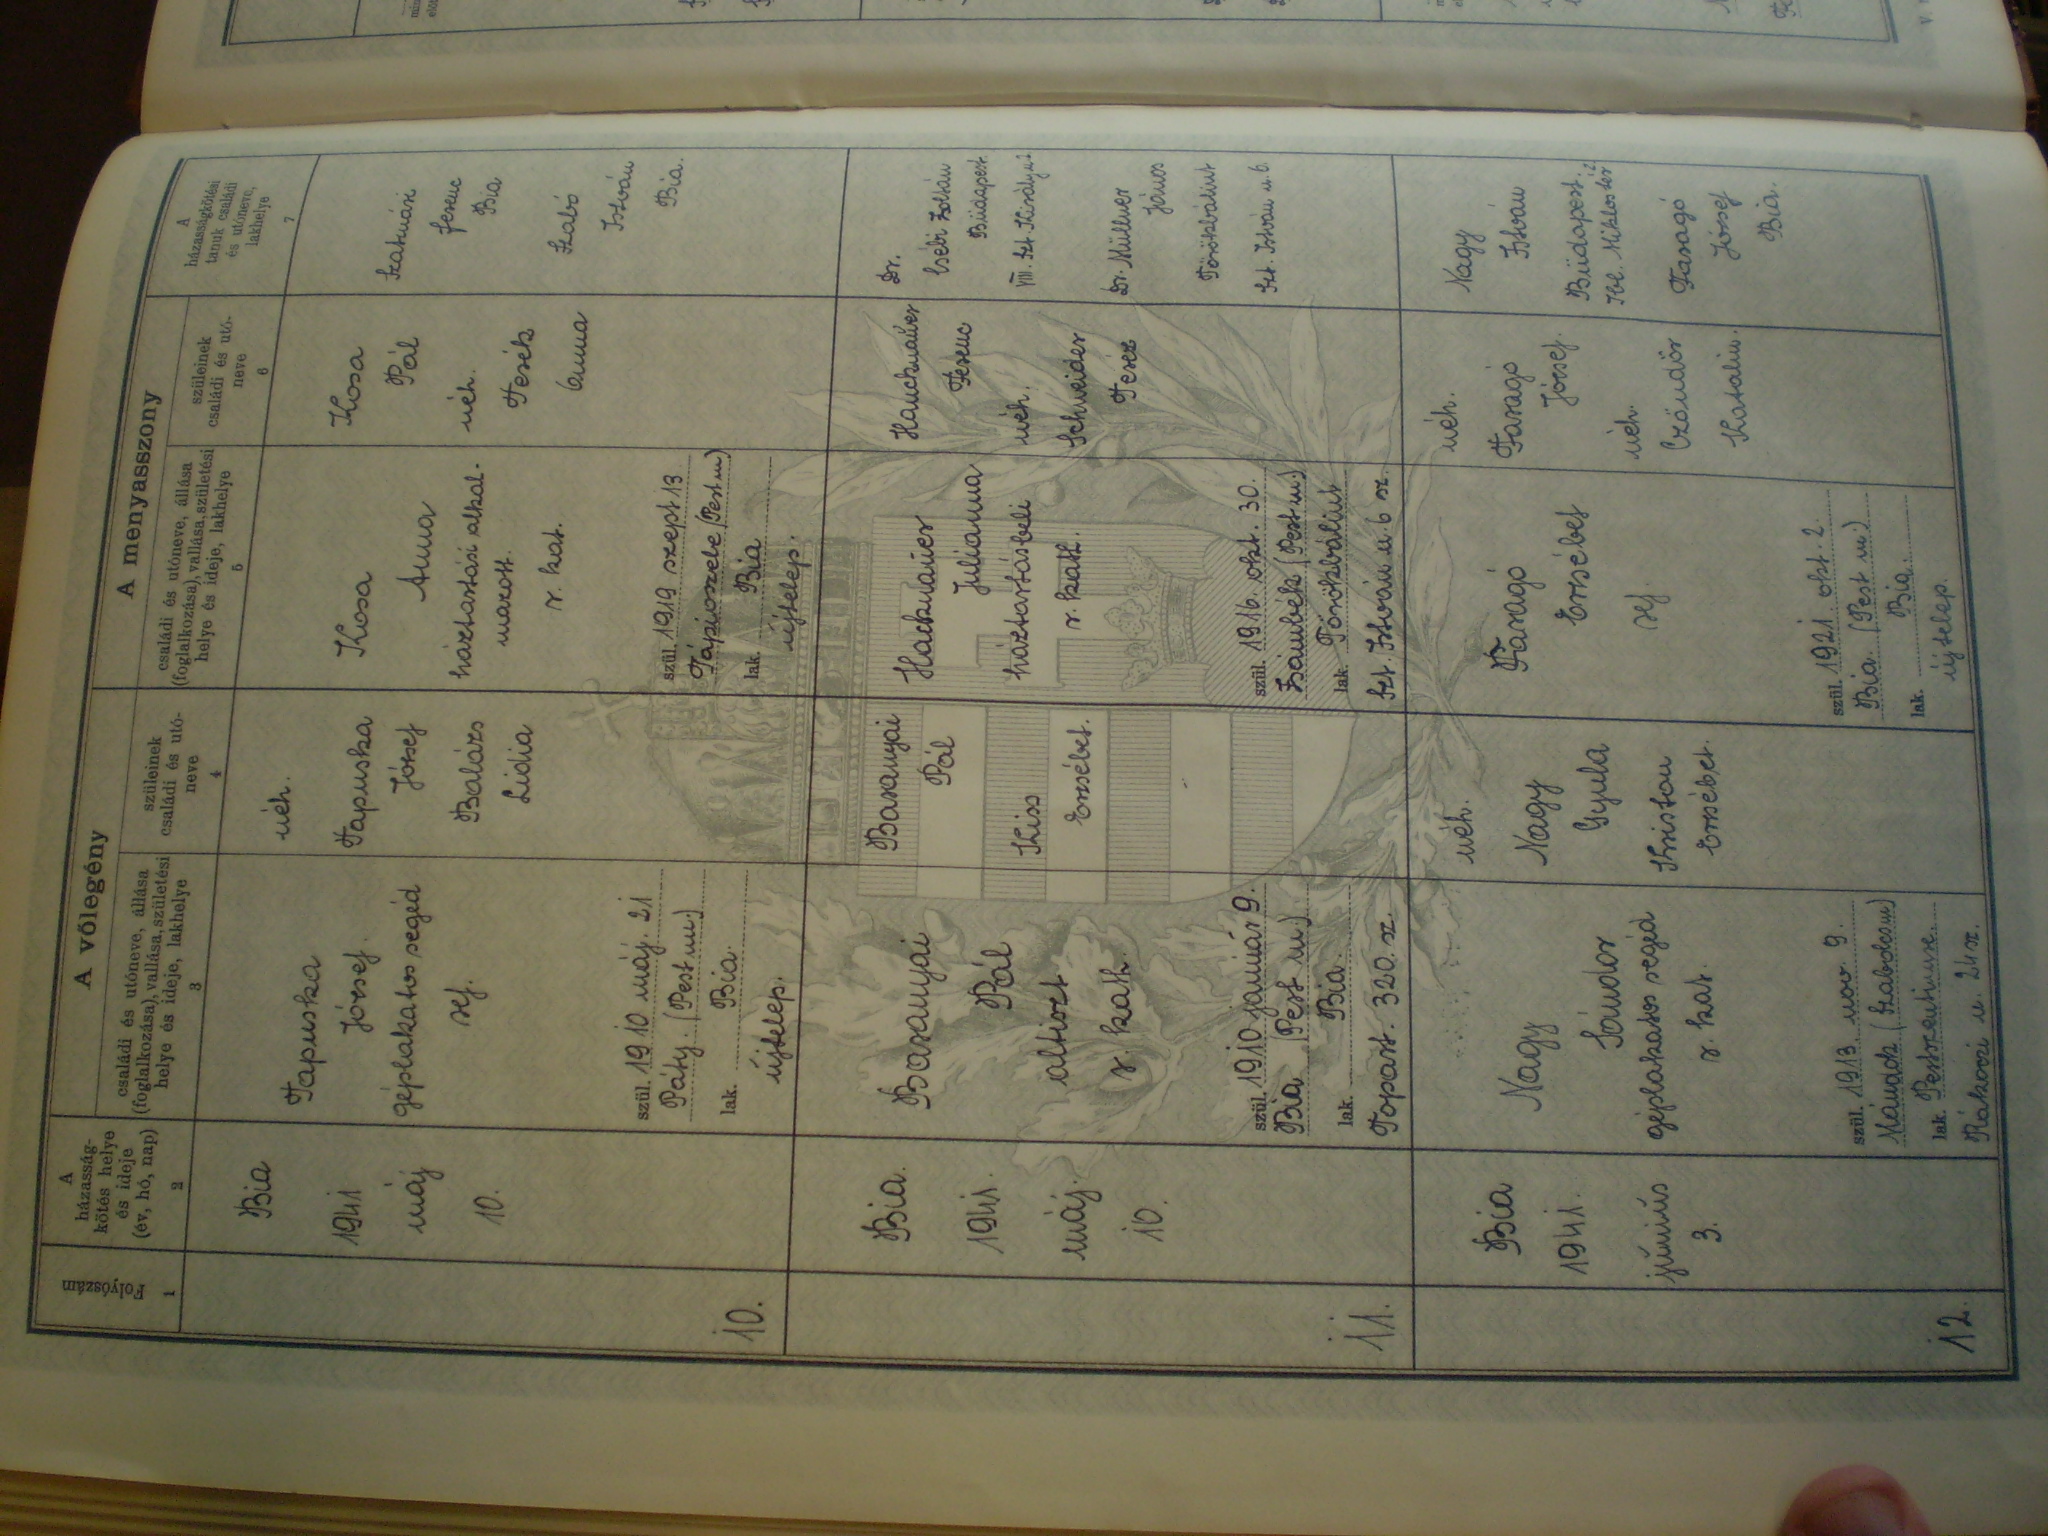 A vőlegény
A menyasszony
Folyószám
1
A
házasság-
kötés helye
és ideje
(év, hó, nap)
2
családi és utóneve, állása
(foglalkozása), vallása, születési
helye és ideje, lakhelye
3
szüleinek
családi és utó-
neve
4
családi és utóneve, állása
(foglalkozása), vallása, születési
helye és ideje, lakhelye
5
szüleinek
családi és utó-
neve
6
A
házasságkötési
tanuk családi
és utóneve,
lakhelye
7
10.
Bia
1941
máj
10.
Tapuska
József.
géplakatos segéd
ref.
szül. 1910 máj. 21
Páty. (Pest m.)
lak. Bia.
újtelep.
néh.
Tapuska
József
Balázs
Lidia
Kosa
Anna
háztartási alkal-
mazott.
r. kat.
szül. 1919 szept 13
Tápioszele (Pest m.)
lak. Bia
újtelep.
Kosa
Pál
néh.
Terék
Anna
Szatmári
ferenc
Bia
Szabó
István
Bia.
11.
Bia.
1941.
máj.
10.
Baranyai
Pál
altiszt
r. kath.
szül. 1910 január 9.
Bia (Pest m.)
lak. Bia.
Topart. 320. sz.
Baranyai
Pál
Kiss
Erzsébet.
Hackmaier
Julianna
háztartásbeli
r. kath.
szül. 1916. okt. 30.
Zsámbék (Pest m.)
lak Törökbálint
Szt. István u. 6 sz.
Ferenc
néh.
Schneider
Teréz
Dr.
Csébi Zoltán
Budapest.
VIII. Szt. Király u.
Dr. Müllner
János
Törökbálint
Szt. István u. 6.
12.
Bia
1941.
június
3.
Nagy
Sándor
géplakatos segéd
r. kat.
szül. 1913 nov. 9.
Mándok (Szabolcs m)
lak. Pestszentimre.
Rákoczi u. 24 sz.
néh.
Nagy
Gyula
Kriston
Erzsébet.
Faragó
Erzsébet
ref.
szül. 1921. okt. 2.
Bia. (Pest m.)
lak. Bia.
újtelep.
néh.
Faragó
József.
néh.
Czándor
Katalin.
Nagy
István
Budapest.
Faragó
József
Bia.